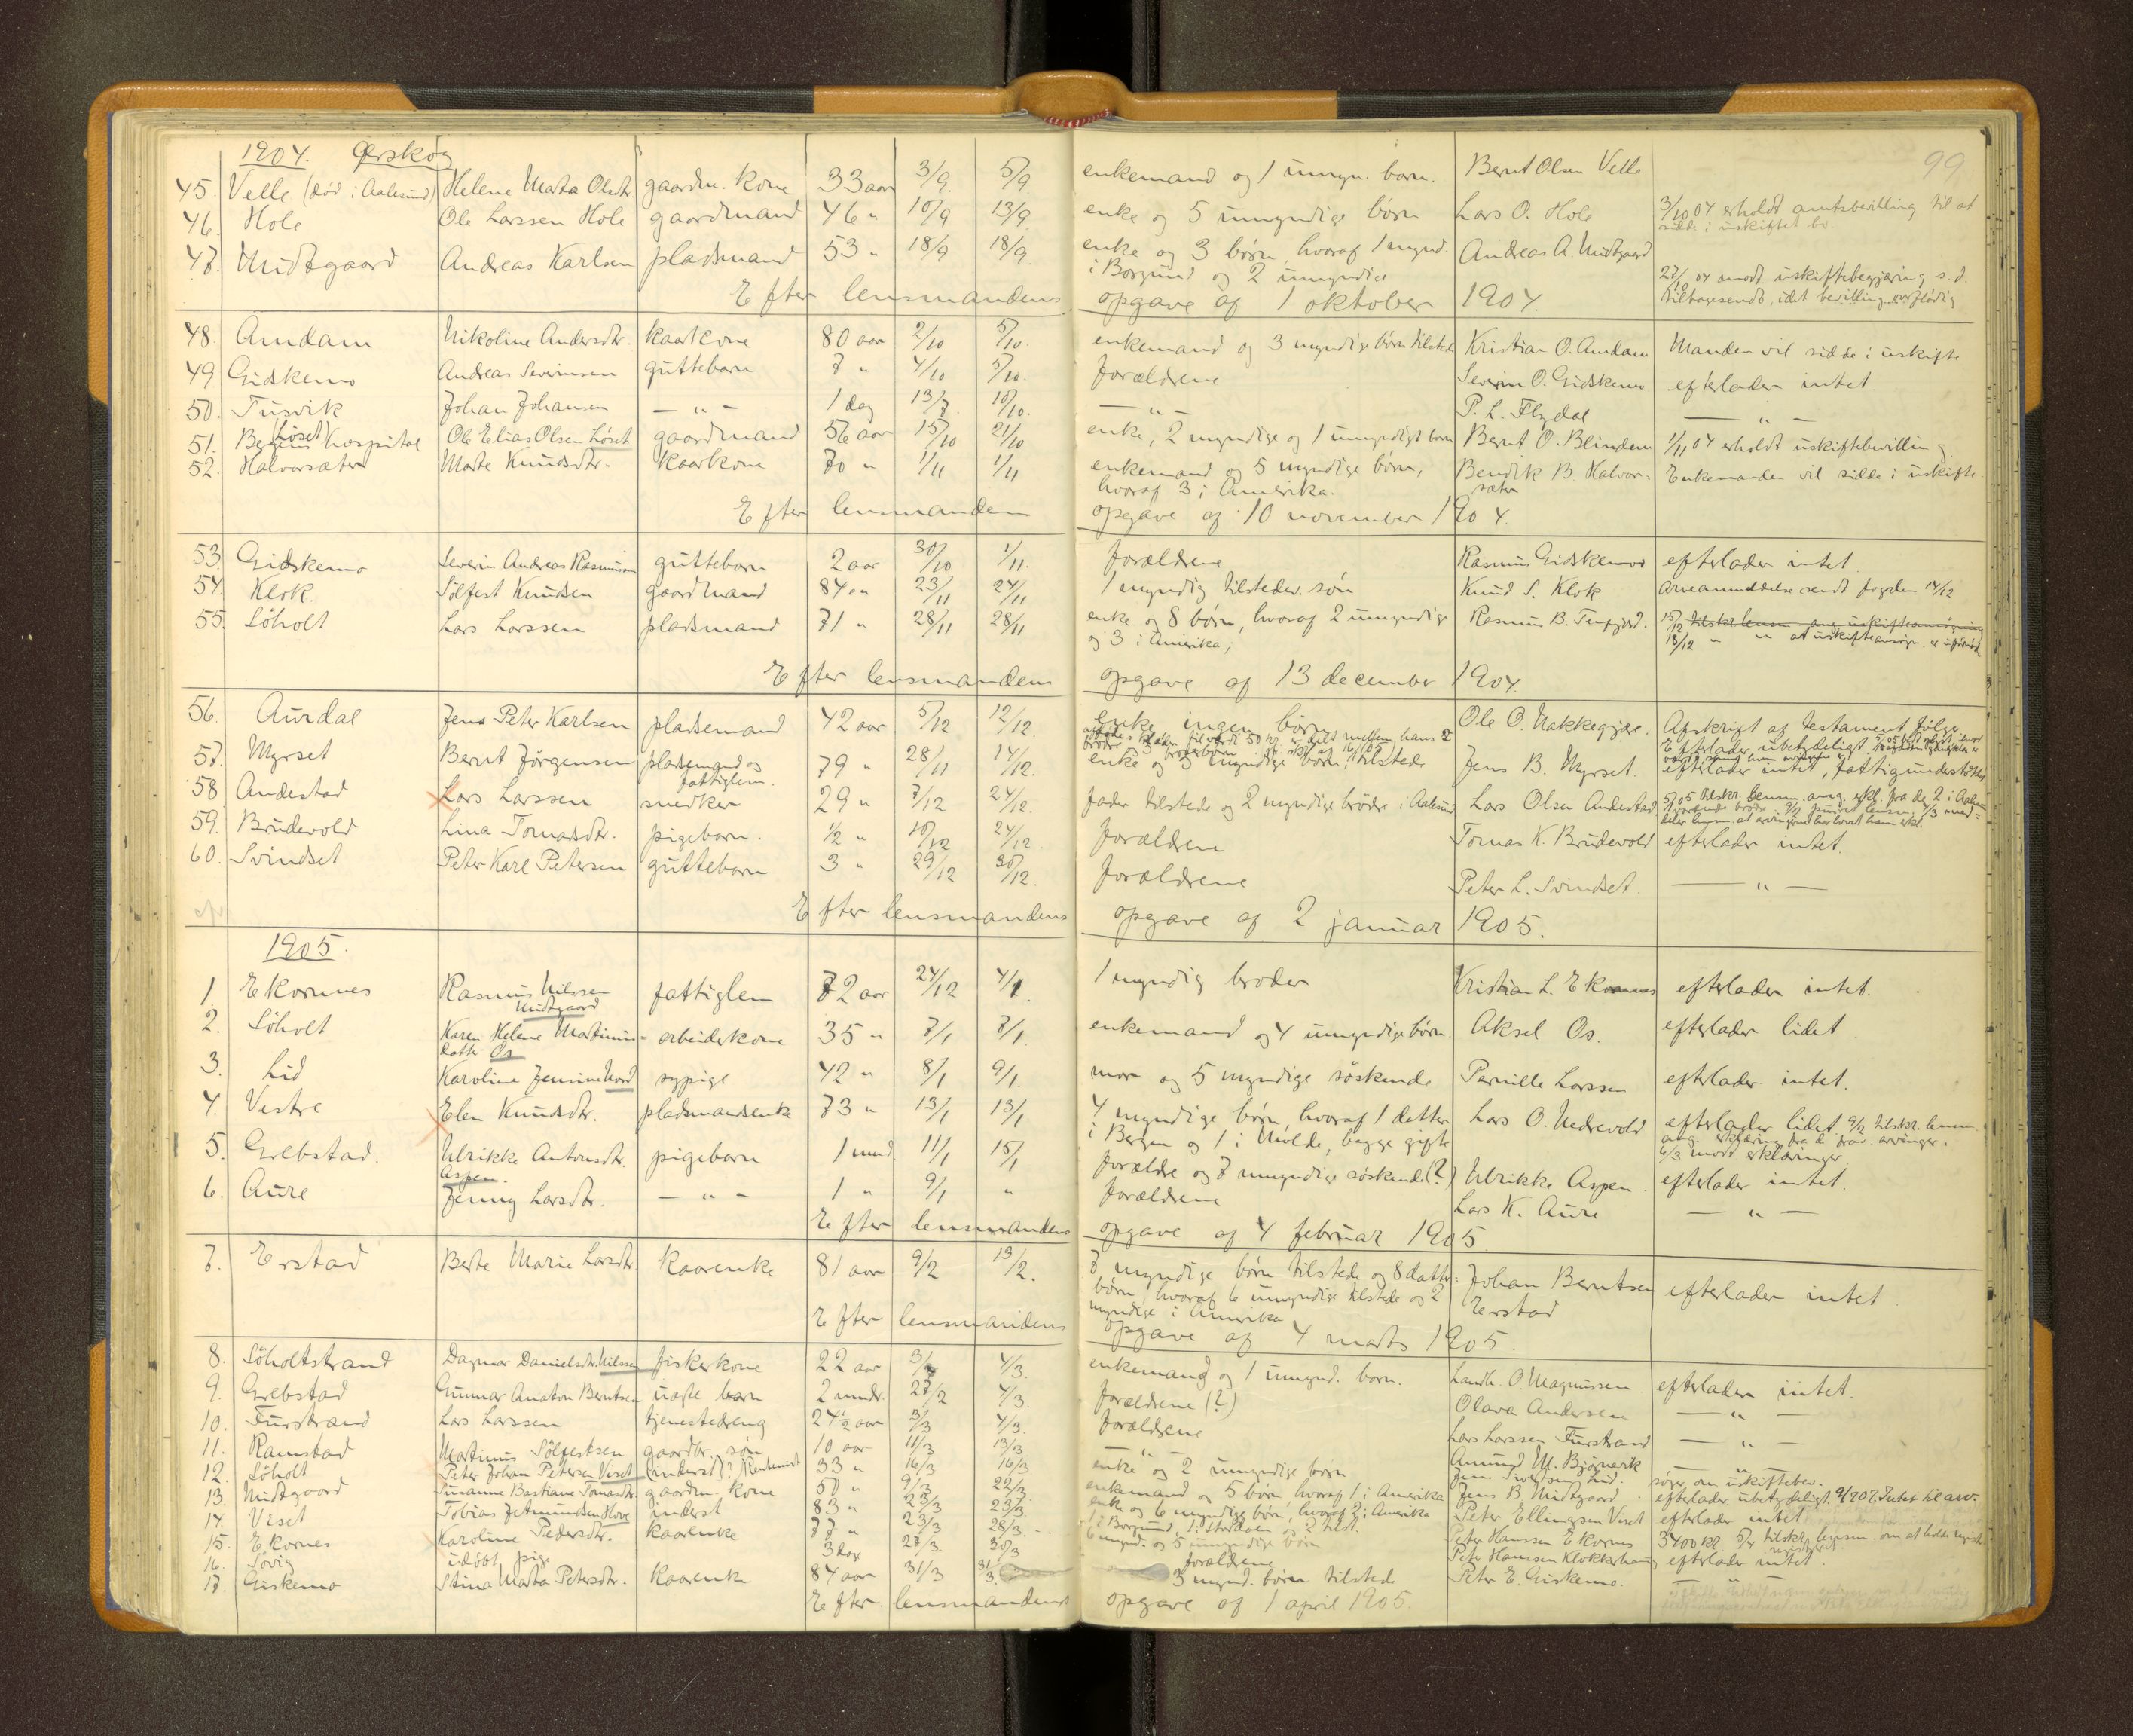 99
1904. Ørskog
45. Velle (død i Aalesund) Helene Marta Olsdtr. gaardm. kone 33 aar 3/9. 5/9 enkemand og 1 umyn. barn. Bernt Olsen Velle
46. Hole Ole Larssen Hole gaardmand 46 " 10/9 13/9. enke og 5 umyndige børn Lars O. Hole 3/10 04 erholdt amtsbevilling til at
sidde i uskiftet bo
47. Midtgaard Andreas Karlsen pladsmand 53 " 18/9 18/9. enke og 3 børn, hvoraf 1 mynd. Andreas A. Midtgaard
i Borgund og 2 umyndige 27/10 04 modt. uskiftebegjæring s. d.
tilbagesendt, idet bevilling overflødig
Efter lensmandens opgave af 1 oktober 1904.
48. Amdam Nikoline Andersdtr. kaarkone 80 aar 2/10 5/10. enkemand og 3 myndige børn tilstede Kristian O. Amdam Manden vil sidde i uskifte
49 Gidskemo Andreas Severinsen guttebarn 7 " 4/10 5/10. forældrene Severin O. Gidskemo efterlader intet
50. Tusvik Johan Johansen — " — 1 dag 13/7. 10/10. — " — P. L. Flydal — " —
51. Bergens hospital (Løset) Ole Elias Olsen Løset gaardmand 56 aar 15/10 21/10 enke, 2 myndige og 1 umyndigt barn Bernt O. Blindem 1/11 04 erholdt uskiftebevilling.
52. Halvorsæter Marte Knudsdtr. kaarkone 70 " 1/11 1/11 enkemand og 5 myndige børn, Bendik B. Halvor- Enkemanden vil sidde i uskifte
hvoraf 3 i Amerika. sæter
Efter lensmanden opgave af 10 november 1904.
53. Gidskemo Severin Andreas Rasmussen guttebarn 2 aar 30/10 1/11. forældrene Rasmus Gidskemo efterlader intet
54. Klok. Sølfest Knudsen gaardmand 84 " 23/11 24/11 1 myndig tilstedev. søn Knud S. Klok Arveanmeldelse sendt fogden 14/12
55. Søholt Lars Larssen pladsmand 71 " 28/11 28/11 enke og 8 børn, hvoraf 2 umyndige Rasmus B. 15/12 tilskr. lensm. ang. uskifteansøgning
og 3 i Amerika, 18/12 " " at uskifteansøgn. er
Efter lensmandens opgave af 13 december 1904.
56. Aurdal Jens Peter Karlsen pladsemand 42 aar 5/12 12/12. enke, ingen børn Ole O. Nakkegjære. Afskrift af testament følger
Efterlader ubetydeligt
57. Myrset Bernt Jørgensen pladsemand og 79 " 28/11 14/12. enke og 3 myndige børn, tilstede Jens B. Myrset. efterlader intet, fattigunderstøttet
fattiglem.
58 Andestad Lars Larssen snedker 29 " 7/12 24/12. fader tilstede og 2 myndige brødre i Aalesund Lars Olsen Andestad 5/1 05 tilskr. lensm. ang. erkl. fra de 2 i Aalesund
59. Brudevold Lina Tomasdtr. pigebarn. 1/2 " 10/12 24/12. forældrene Tomas K. Brudevold efterlader intet.
60. Svindset Peter Karl Petersen guttebarn 3 " 29/12 30/12. forældrene Peter L. Svindset. — " —
Efter lensmandens opgave af 2 januar 1905.
1905.
1. Ekornnes Rasmus Nilssen fattiglem 72 aar 24/12 4/1. 1 myndig broder Kristian L. Ekornnes efterlader intet.
Midtgaard
2. Søholt Karen Helene Martinus- arbeiderkone 35 " 7/1 7/1 enkemand og 4 umyndige børn. Aksel Os. efterlader lidet
datter Os
3. Lid Karoline Jensine Nord sypige 42 " 8/1 9/1. mor og 5 myndige søskende Pernille Larssen efterlader intet.
4. Vestre Elen Knudsdtr. pladsmandsenke 73 " 13/1 13/1 4 myndige børn, hvoraf 1 datter Lars O. Nedrevold efterlader lidet 9/2 tilskr. lensm.
i Bergen og 1 i Molde, begge gifte ang. erklæring fra de arvinger.
6/3 modt. erklæringer
5. Grebstad. Ulrikke Antonsdtr. pigebarn 1 mnd 11/1 15/1 forældre og 7 umyndige søskende (?) Ulrikke Aspen efterlader intet.
Aspen.
6. Aure Jenny Larsdtr. — " — 1 " 9/1 " forældrene Lars K. Aure — " —
Efter lensmandens opgave af 4 februar 1905
7. Erstad Berte Marie Larsdtr. kaarenke 81 aar 9/2 13/2. 7 myndige børn tilstede og 8 datter- Johan Berntsen efterlader intet
børn, hvoraf 6 umyndige tilstede og 2 Erstad
myndige i Amerika
Efter lensmandens opgave af 4 marts 1905.
8. Søholtstrand Dagmar Danielsdtr. Nilssen fiskerkone 22 aar 4/3. enkemand og 1 umynd. barn. Landh. O. Magnussen efterlader intet.
9. Grebstad Gunnar Anaton Berntsen uægte barn 2 mndr. 27/2 4/3. forældrene (?) Olava Andersen — " —
10. Furstrand Lars Larssen tjenestedreng 24 1/2 aar 3/3 4/3. forældrene Lars Larssen Furstrand — " —
11. Ramstad Martinus Sølfestsen gaardbr. søn 10 aar 11/3 13/3 — " — Amund M. Bjørnevik — " —
12. Søholt Peter Johan Petersen Viset (inderst)? 33 " 16/3 16/3 enke og 2 umyndige børn Jens Sivertsen Lid. søger om uskiftebev.
13. Midtgaard Susanne Bastiane Tomasdtr. gaardm. kone 50 " 9/3 22/3 enkemand og 5 børn hvoraf 1 i Amerika Jens B Midtgaard efterlader ubetydeligt. 9/2 07. Intet til arv.
14. Viset Tobias Jetmundsen Hove inderst 83 " 23/3 23/3 enke og 6 myndige børn, hvoraf 2 i Amerika Peter Ellingsen Viset efterlader intet
1 i Borgund, 1 i Stordalen og 2 tilst.
15. Ekornes Karoline Pedersdtr. kaarenke 77 " 23/3 28/3 6 mynd. og 5 umyndige børn Peter Hanssen Ekornes 3400 kr. tilskr. lensm. om at holde
16. Søvig udøbt pige 3 dag 27/3 30/3 forældrene Peter Hanssen Klokkerhaug efterlader intet.
17. Giskemo Stina Marta Petersdtr. kaarenke 84 aar 31/3 31/3. 3 mynd. børn tilstede Peter E. Giskemo. — " —
Efter lensmandens opgave af 1 april 1905.